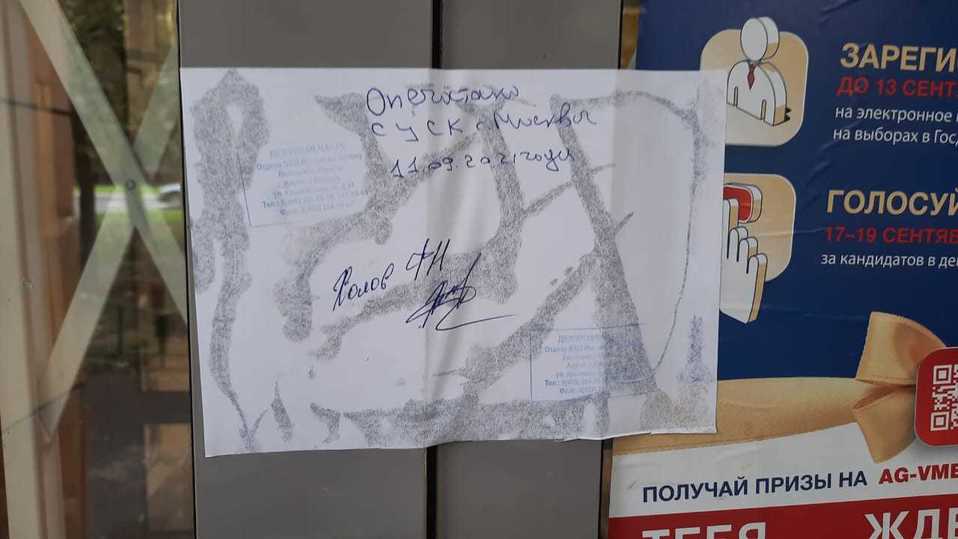 Опечатано
СУ СК г Москвы
11.09.2021 года
Холов ФН
ЗАРЕГИ
ДО 13 СЕНТ
на электронное
на выборах в Гос
ГОЛОСУЙ
17–19 СЕНТЯБ
за кандидатов в де
ПОЛУЧАЙ ПРИЗЫ НА AG-VME
ТЕБЯ ЖДЕ